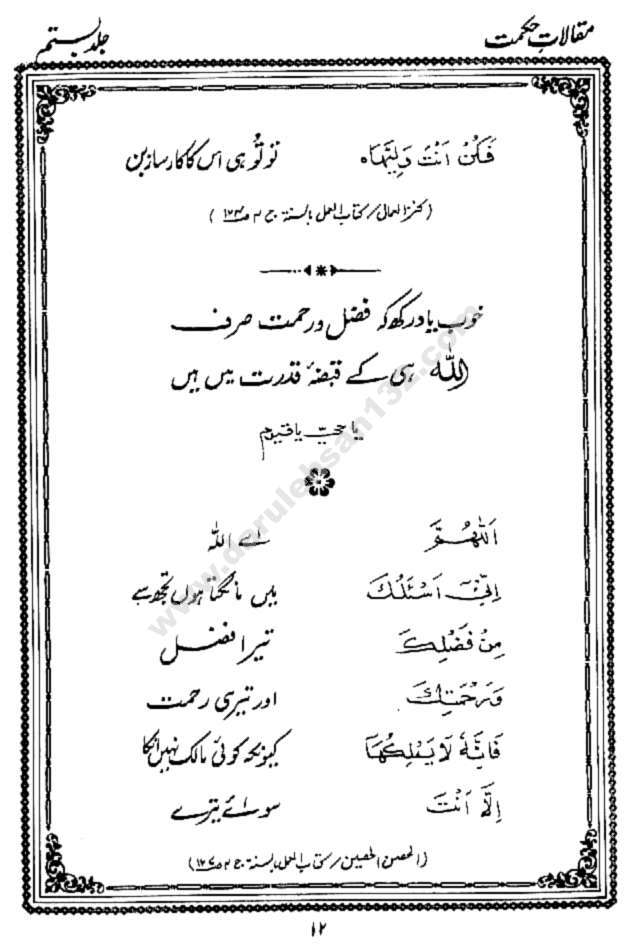 مقالاتِ حکمت جلد بستم
فَكُنْ اَنْتَ وَلِيَّهَا٥ تو تُو ہی اس کا کارساز بن
(کنز العمال / کتاب العمل بالسنۃ ج ۲ ص
خوب یاد رکھ کہ فضل و رحمت صرف
اللّٰہ ہی کے قبضۂ قدرت میں ہیں
یا حیّ یا قیوم
اَللّٰهُمَّ اے اللہ
اِنِّیْٓ اَسْئَلُكَ میں مانگتا ہوں تجھ سے
مِنْ فَضْلِكَ تیرا فضل
وَرَحْمَتِكَ اور تیری رحمت
فَاِنَّهٗ لَا يَمْلِكُهَا کیونکہ کوئی مالک نہیں انکا
اِلَّا اَنْتَ سوائے تیرے
(الحصن الحصین / کتاب العمل بالسنۃ ج ۲ ص
۱۲
www.darulehsan132.com